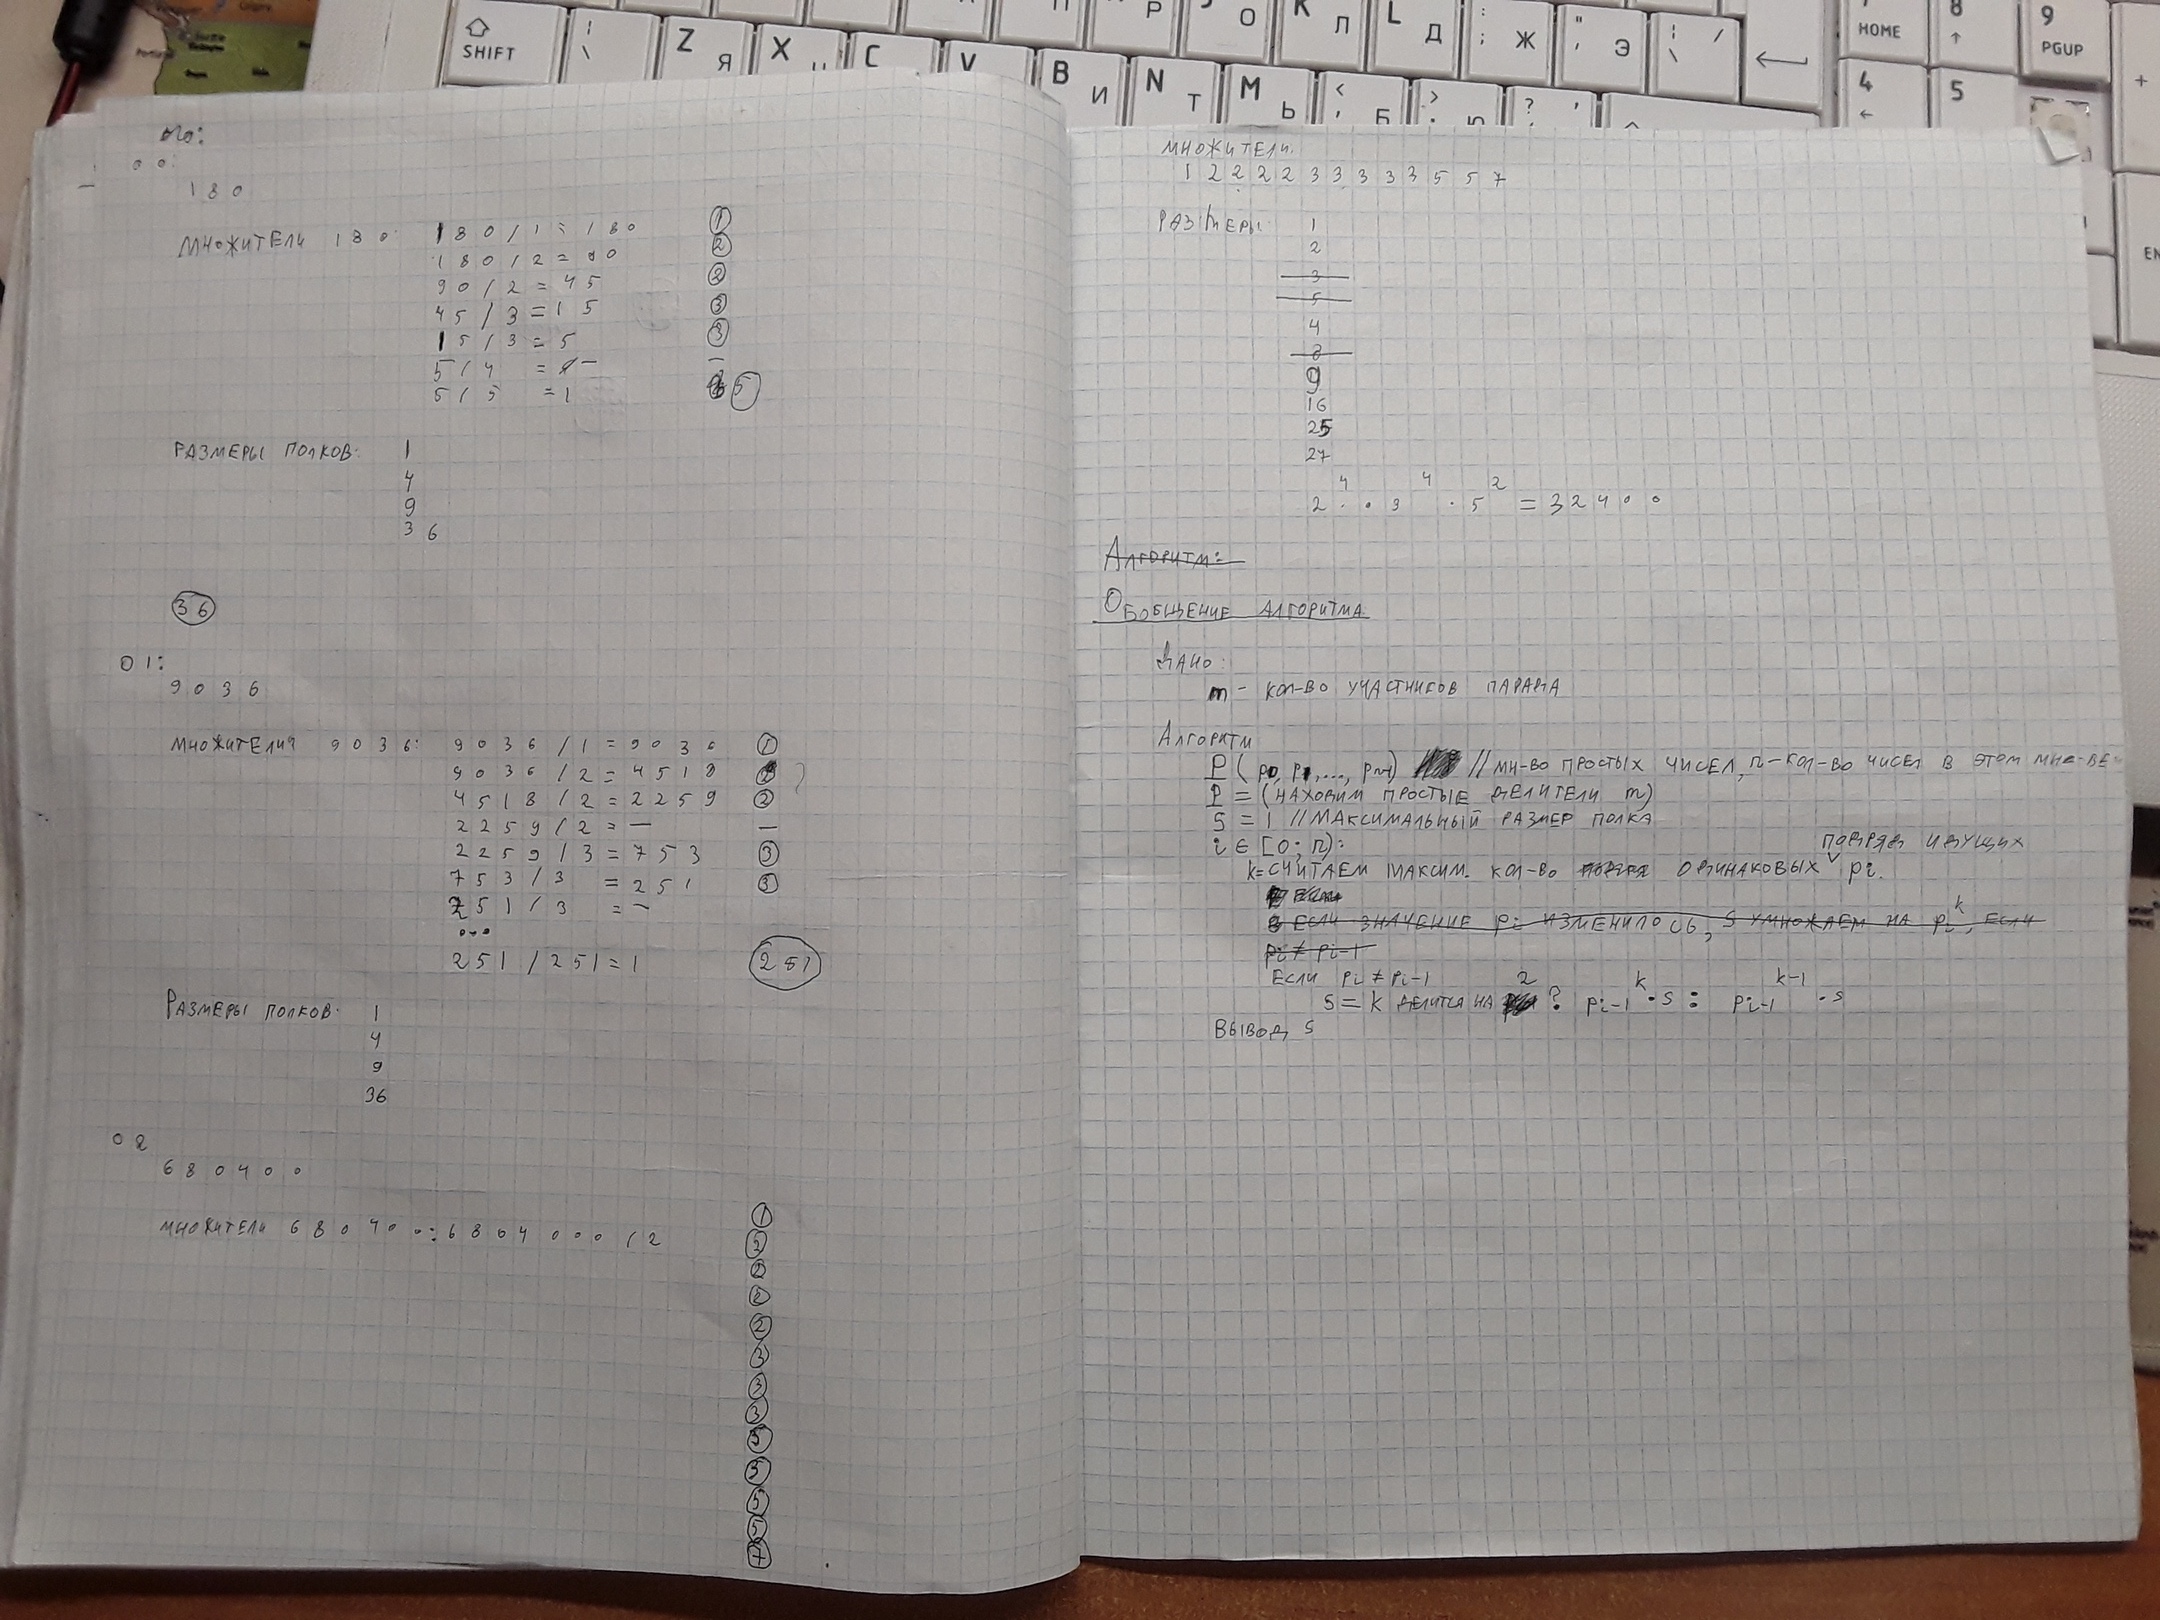 SHIFT
Z Я
X
C
V
B И
N Т
M Ь
< , Б
> . Ю
? ,
Р
О
K Л
L Д
: ; Ж
" ' Э
7 HOME
8
9 PGUP
4
5
+
00:
180
МНОЖИТЕЛИ 180: 180/1=180 1
180/2=90 2
90/2=45 2
45/3=15 3
15/3=5 3
5/4 = – –
5/5 =1 5
РАЗМЕРЫ ПОЛКОВ: 1
4
9
36
36
01:
9036
МНОЖИТЕЛИ 9036: 9036/1=9036 1
9036/2=4518 2
4518/2=2259 2
2259/2=– –
2259/3=753 3
753/3 =251 3
251/3 =–
...
251/251=1 251
РАЗМЕРЫ ПОЛКОВ: 1
4
9
36
02
680400
МНОЖИТЕЛИ 680400:6804000/2 1
2
2
2
2
3
3
3
5
5
5
5
7
МНОЖИТЕЛИ:
1 2 2 2 2 3 3 3 3 3 5 5 7
РАЗМЕРЫ: 1
2
3
5
4
8
9
16
25
27
2^4 · 3^4 · 5^2 = 32400
АЛГОРИТМ:
ОБОБЩЕНИЕ АЛГОРИТМА
ДАНО:
m - КОЛ-ВО УЧАСТНИКОВ ПАРАДА
АЛГОРИТМ
P (p0, p1, ..., pn-1) // МН-ВО ПРОСТЫХ ЧИСЕЛ, n-КОЛ-ВО ЧИСЕЛ В ЭТОМ МНО-ВЕ
P = (НАХОДИМ ПРОСТЫЕ ДЕЛИТЕЛИ m)
S = 1 // МАКСИМАЛЬНЫЙ РАЗМЕР ПОЛКА
i ∈ [0; n):
k=СЧИТАЕМ МАКСИМ. КОЛ-ВО ОДИНАКОВЫХ ПОДРЯД ИДУЩИХ pi.
ЕСЛИ ЗНАЧЕНИЕ pi ИЗМЕНИЛОСЬ, S УМНОЖАЕМ НА pi^k, ЕСЛИ
pi ≠ pi-1
ЕСЛИ pi ≠ pi-1
S = k ДЕЛИТСЯ НА 2 ? pi-1^k · S : pi-1^k-1 · S
ВЫВОД S